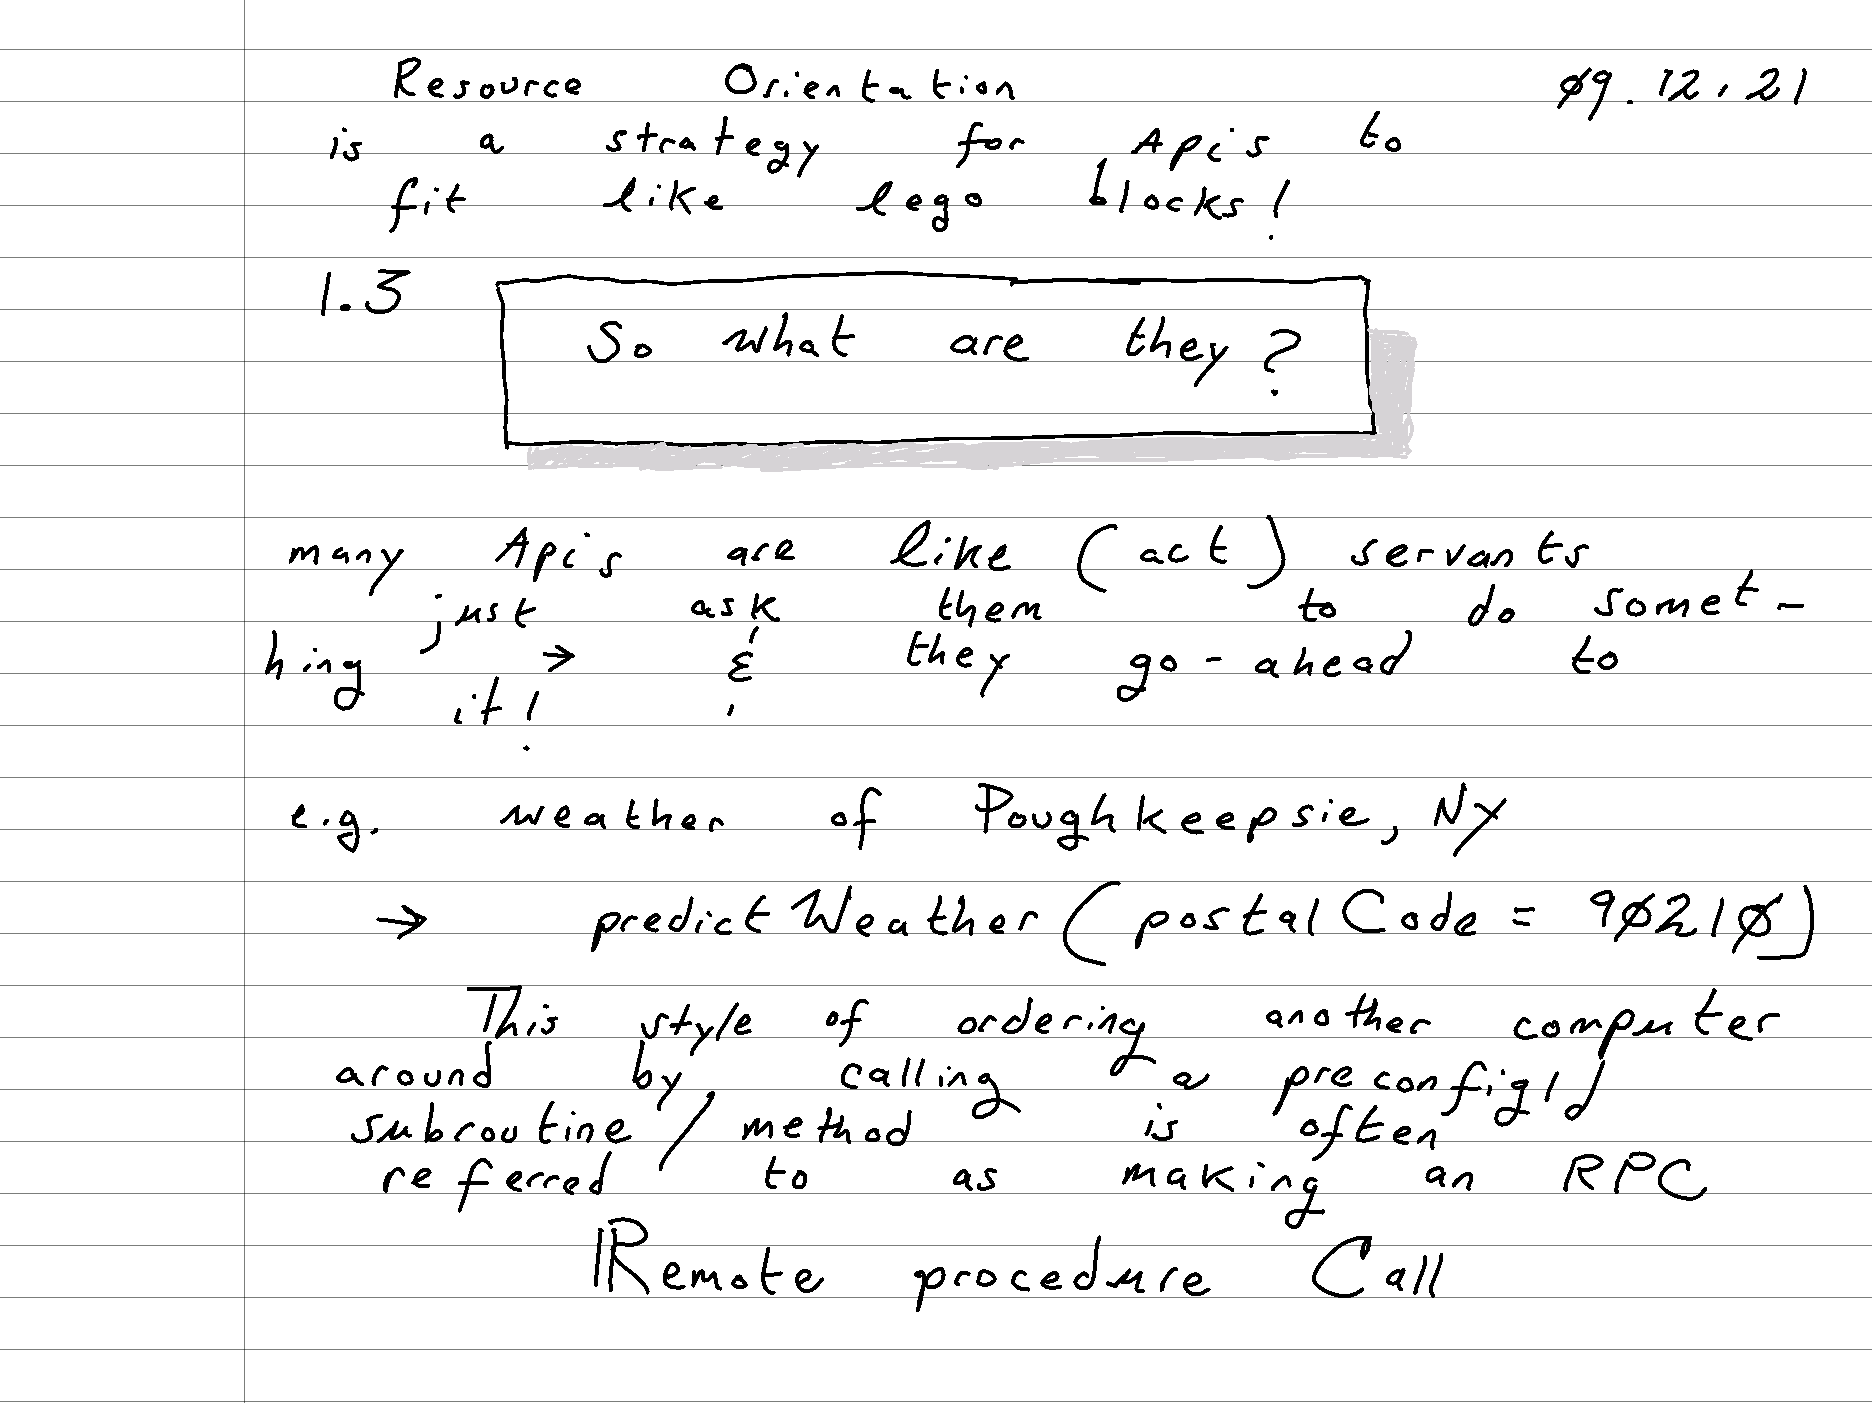 Resource Orientation 09.12.21
is a strategy for Api's to
fit like lego blocks!
1.3 So what are they?
many Api's are like (act) servants
just ask them to do somet-
hing → & they go-ahead to
it!
e.g. weather of Poughkeepsie, NY
→ predictWeather(postalCode = 90210)
This style of ordering another computer
around by calling a preconfig'd
subroutine/method is often
referred to as making an RPC
Remote procedure Call